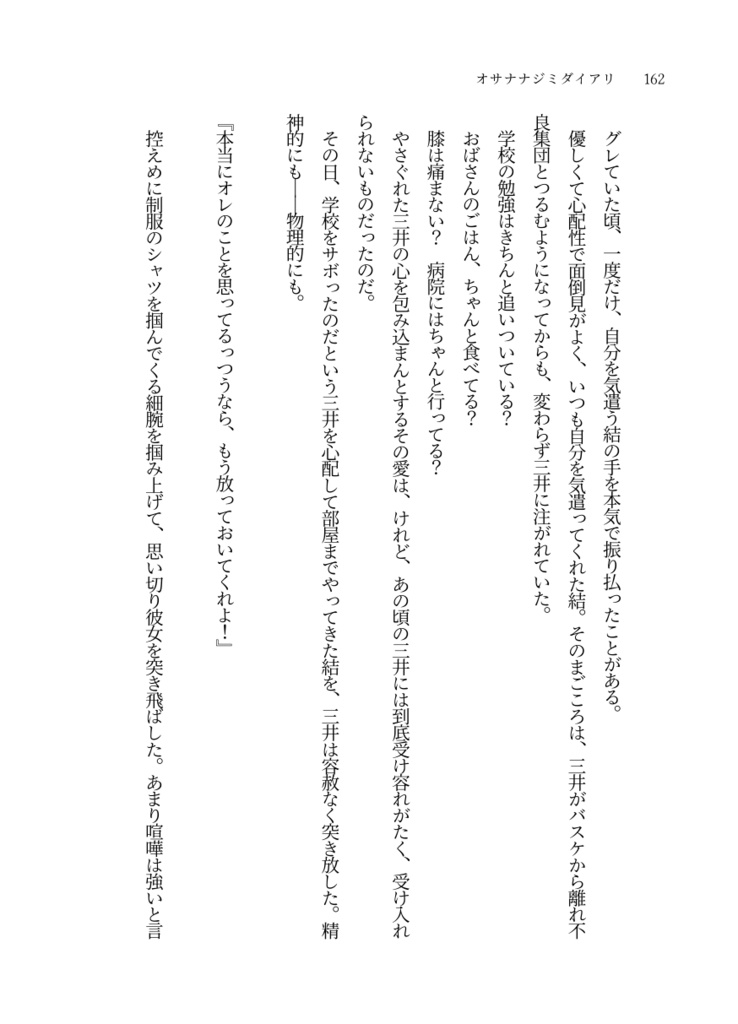 オサナナジミダイアリ　162
　グレていた頃、一度だけ、自分を気遣う結の手を本気で振り払ったことがある。
　優しくて心配性で面倒見がよく、いつも自分を気遣ってくれた結。そのまごころは、三井がバスケから離れ不
良集団とつるむようになってからも、変わらず三井に注がれていた。
　学校の勉強はきちんと追いついている？
　おばさんのごはん、ちゃんと食べてる？
　膝は痛まない？　病院にはちゃんと行ってる？
　やさぐれた三井の心を包み込まんとするその愛は、けれど、あの頃の三井には到底受け容れがたく、受け入れ
られないものだったのだ。
　その日、学校をサボったのだという三井を心配して部屋までやってきた結を、三井は容赦なく突き放した。精
神的にも――物理的にも。
『本当にオレのことを思ってるっつうなら、もう放っておいてくれよ！』
　控えめに制服のシャツを掴んでくる細腕を掴み上げて、思い切り彼女を突き飛ばした。あまり喧嘩は強いと言